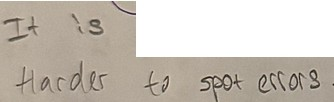 It is
Harder to spot errors.